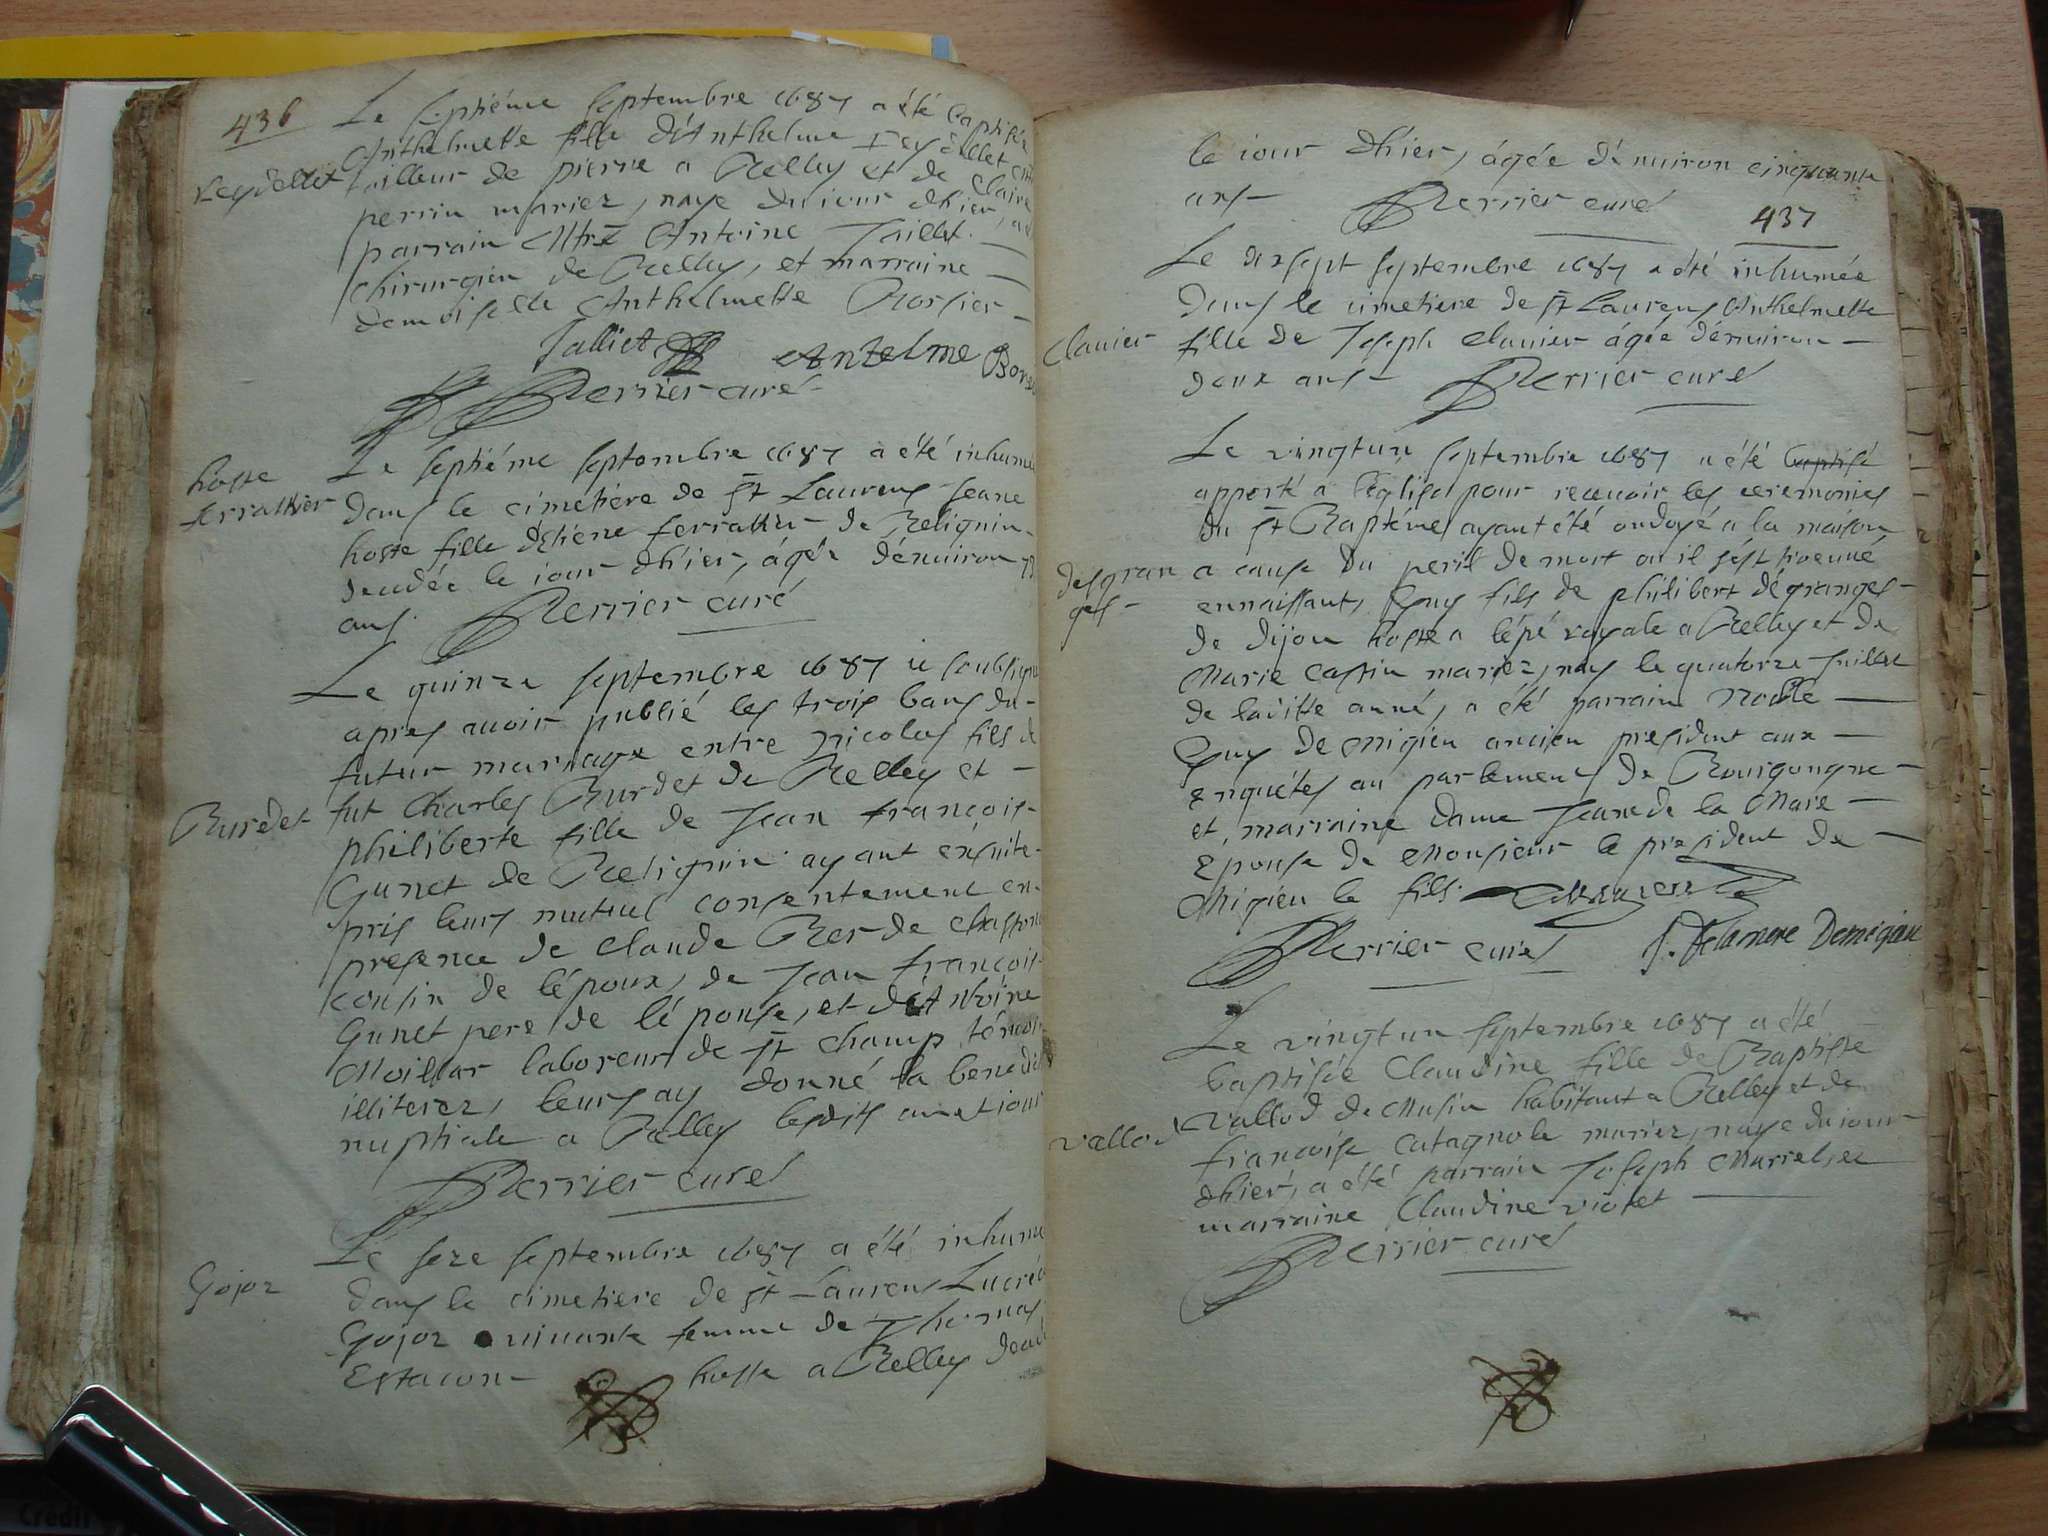 436
Le septiéme septembre 1687 a été baptisée
Anthelmette fille d'Anthelme Reydellet
Reydellet
tailleur de pierre a Belley et de Claire
perrin mariez, naye du iour d'hier, a
parrain Mtre Antoine Jaillet
chirurgien de Belley, et marraine
damoiselle Anthelmette Borsier
Jalliet Antelme
Perrier curé
hoste
ferrathier
Le septiéme septembre 1687 a été inhumé
dans le cimetière de St Laurens Jeane
hoste fille d'étiene ferrathier de Belignin
decedée le iour d'hier, âgée d'énuiron
ans. Perrier curé
Le quinze septembre 1687 ie soubsigné
apres auoir publié les trois bans du
futur mariage entre nicolas fils de
Burdet
fut Charles Burdet de Belley et
philiberte fille de Jean françois
Gunet de Belignin ayant ensuite
pris leurs mutuel consentement en
presence de Claude Ber de
cousin de l'époux, de Jean françois
Gunet pere de l'épouse, et d'Antoine
Moillar laboreur de St champ témoins
illiterez, leurs ay donné la benedict
nuptiale a Belley lesdits an et iour
Perrier curé
Gojoz
Le seze septembre 1687 a été inhumé
dans le cimetiere de St Laurens Lucréce
Gojoz viuante femme de Thomas
Estacon hoste a Belley decedé
le iour d'hier, âgée d'enuiron cinquante
ans Perrier curé
437
Le dixsept septembre 1687 a été inhumée
dans le cimetiere de St Laurens Anthelmette
Clauier
fille de Joseph Clauier âgée d'énuiron
deux ans Perrier curé
Le vingtun septembre 1687 a été baptisé
apporté a l'église pour receuoir les ceremonies
du St Baptéme ayant été ondoyé a la maison
desgran
ges
a cause du peril de mort ou il s'est trouué
ennaissant, Guy fils de philibert dégranges
de dijon hoste a l'épé royale a Belley et de
Marie Cassin mariez, nay le quatorze Juillet
de laditte anné, a été parrain Noble
Guy de Migieu ancien president aux
enquétes au parlement de Bourgongne
et marraine dame Jeane de la Mare
épouse de Monsieur le president de
Migieu le fils.
Perrier curé J. Delamare Demigieu
Le vingtun septembre 1687 a été
baptisée Claudine fille de Baptiste
Vallod
Vallod de Musin habitant a Belley et de
françoise Catagnole mariez, naye du iour
d'hier, a été parrain Joseph Marrel, et
marraine Claudine violet
Perrier curé